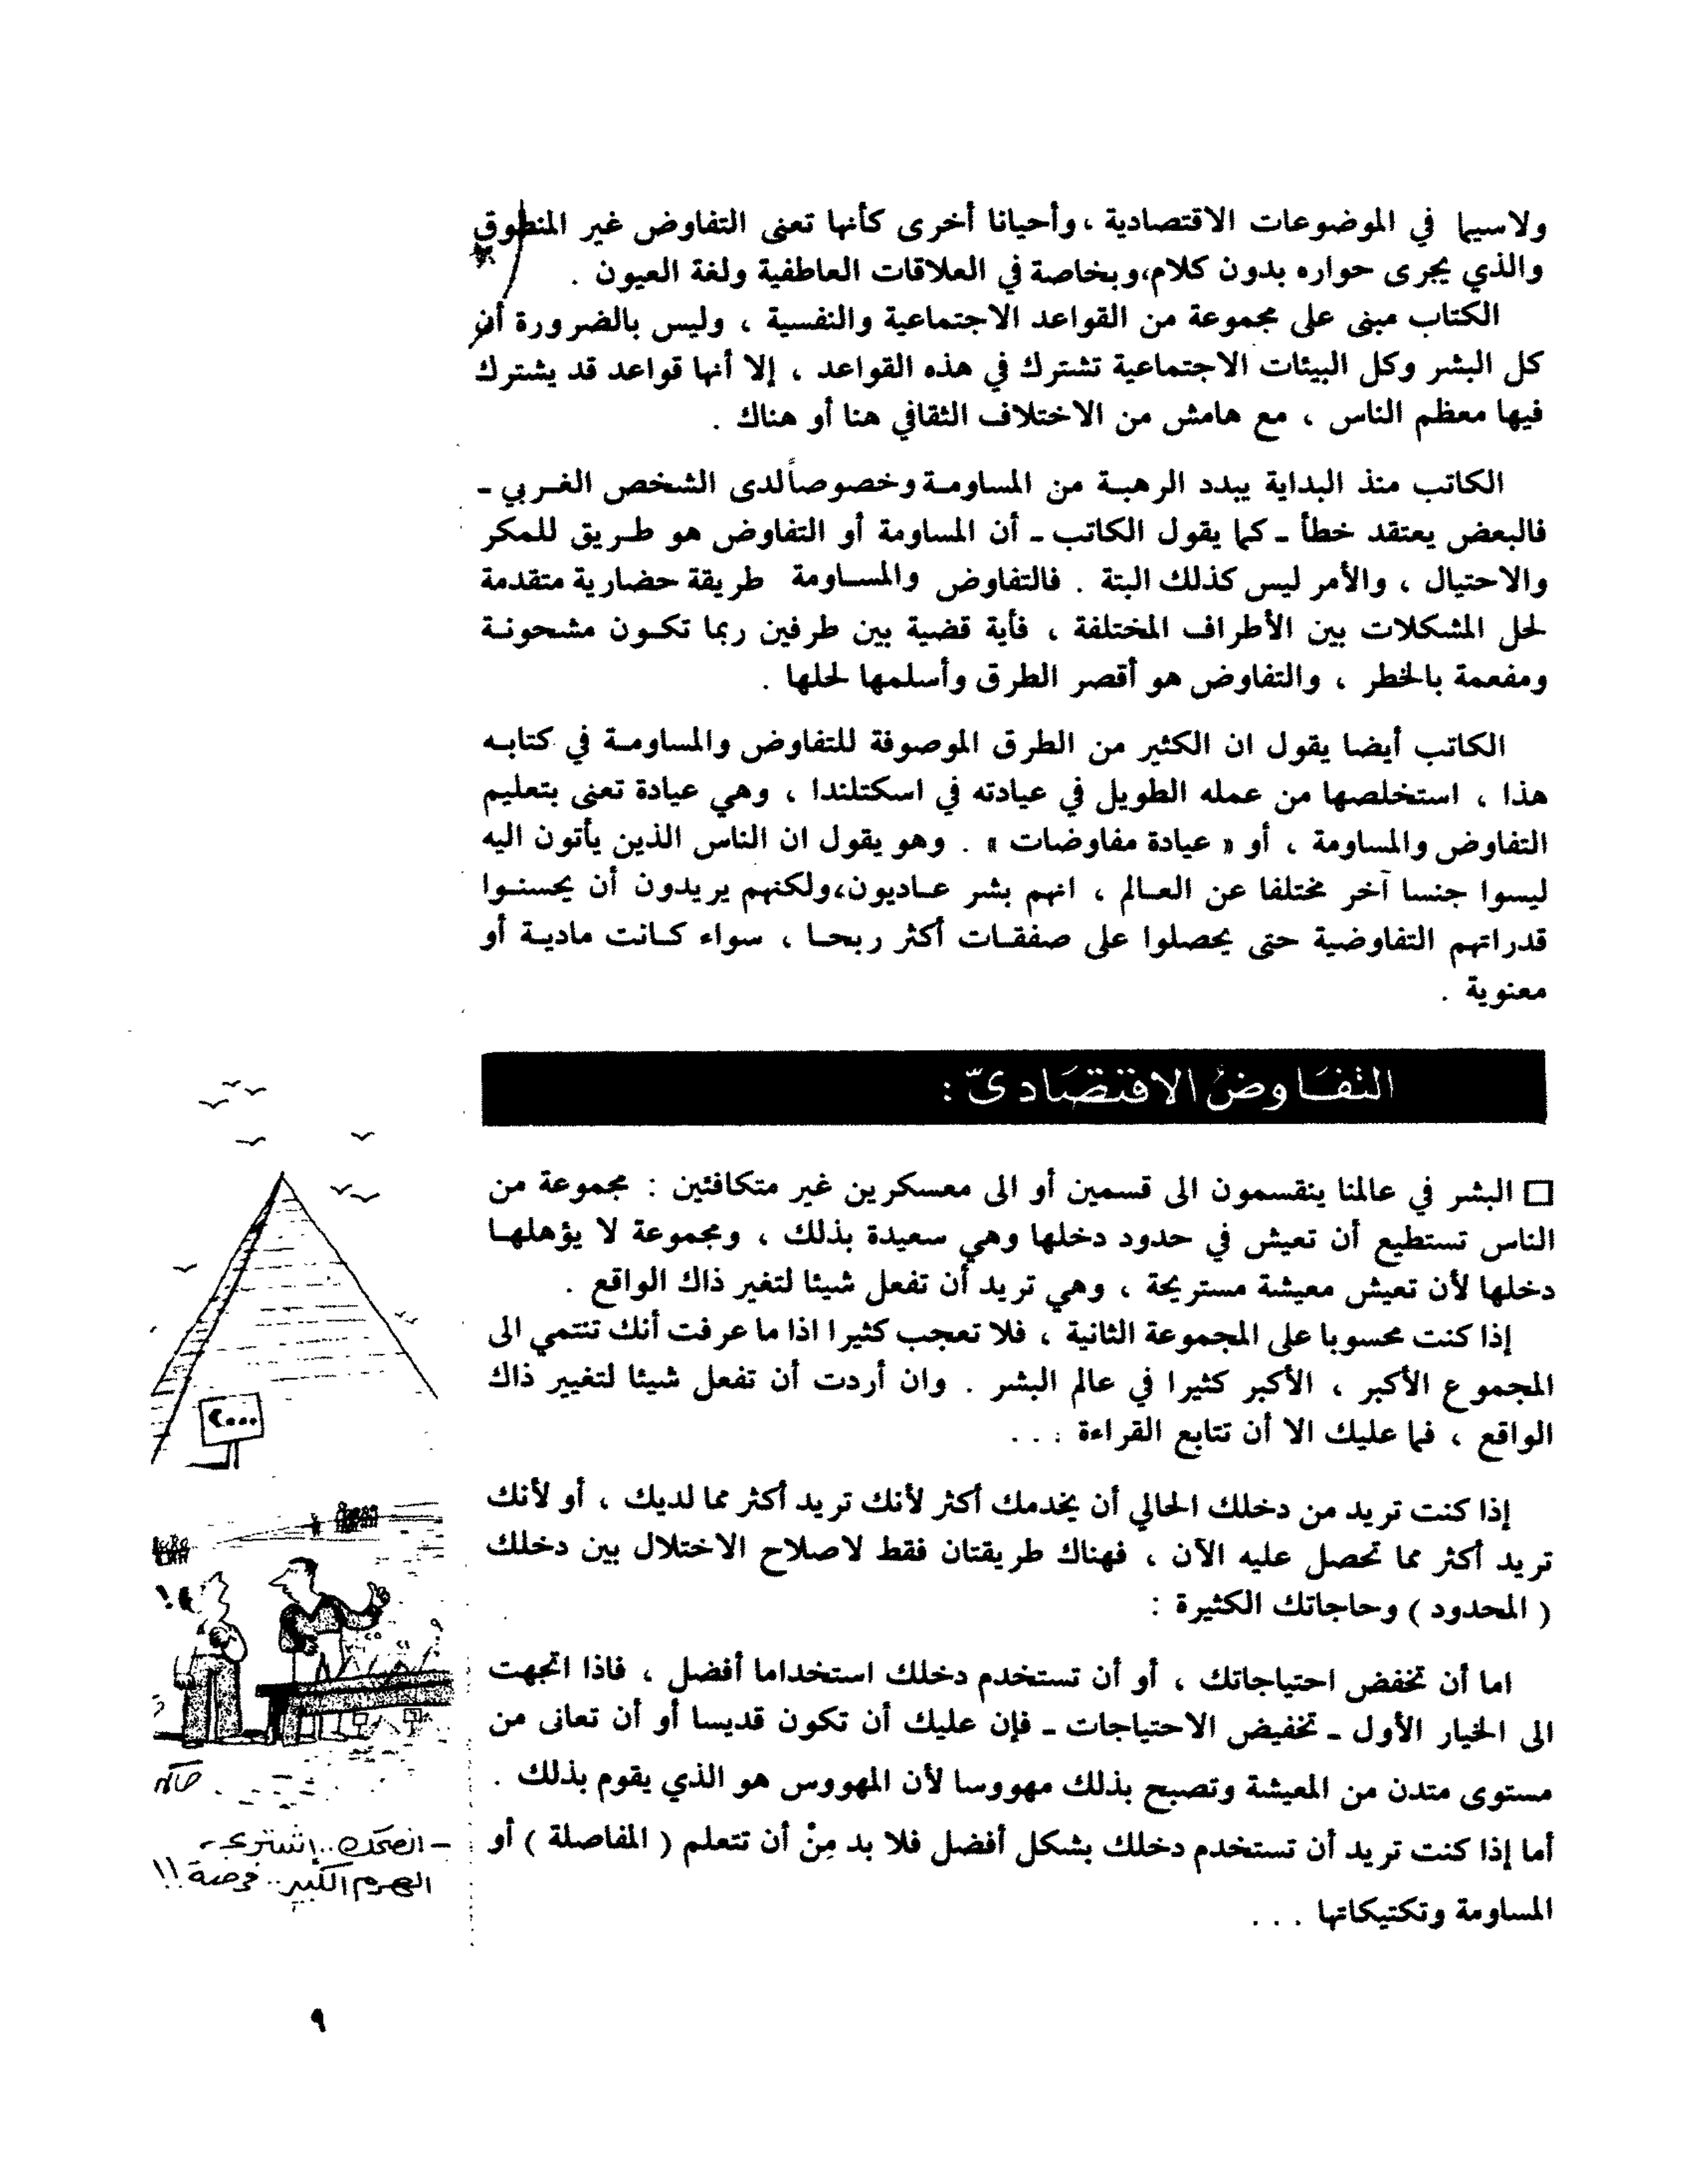 ولاسيما في الموضوعات الاقتصادية ، وأحيانا أخرى كأنها تعنى التفاوض غير المنطوق
والذي يجرى حواره بدون كلام،وبخاصة في العلاقات العاطفية ولغة العيون .
الكتاب مبنى على مجموعة من القواعد الاجتماعية والنفسية ، وليس بالضرورة أن
كل البشر وكل البيئات الاجتماعية تشترك في هذه القواعد ، إلا أنها قواعد قد يشترك
فيها معظم الناس ، مع هامش من الاختلاف الثقافي هنا أو هناك .
الكاتب منذ البداية يبدد الرهبة من المساومة وخصوصاً لدى الشخص الغربي -
فالبعض يعتقد خطأ - كما يقول الكاتب - أن المساومة أو التفاوض هو طريق للمكر
والاحتيال ، والأمر ليس كذلك البتة . فالتفاوض والمساومة طريقة حضارية متقدمة
لحل المشكلات بين الأطراف المختلفة ، فأية قضية بين طرفين ربما تكون مشحونة
ومفعمة بالخطر ، والتفاوض هو أقصر الطرق وأسلمها لحلها .
الكاتب أيضا يقول ان الكثير من الطرق الموصوفة للتفاوض والمساومة في كتابه
هذا ، استخلصها من عمله الطويل في عيادته في اسكتلندا ، وهي عيادة تعنى بتعليم
التفاوض والمساومة ، أو « عيادة مفاوضات » . وهو يقول ان الناس الذين يأتون اليه
ليسوا جنسا آخر مختلفا عن العالم ، انهم بشر عاديون،ولكنهم يريدون أن يحسنوا
قدراتهم التفاوضية حتى يحصلوا على صفقات أكثر ربحا ، سواء كانت مادية أو
معنوية .
التفَاوضُ الاقتصَادىّ :
□ البشر في عالمنا ينقسمون الى قسمين أو الى معسكرين غير متكافئين : مجموعة من
الناس تستطيع أن تعيش في حدود دخلها وهي سعيدة بذلك ، ومجموعة لا يؤهلها
دخلها لأن تعيش معيشة مستريحة ، وهي تريد أن تفعل شيئا لتغير ذاك الواقع .
إذا كنت محسوبا على المجموعة الثانية ، فلا تعجب كثيرا اذا ما عرفت أنك تنتمي الى
المجموع الأكبر ، الأكبر كثيرا في عالم البشر . وان أردت أن تفعل شيئا لتغيير ذاك
الواقع ، فما عليك الا أن تتابع القراءة . . .
إذا كنت تريد من دخلك الحالي أن يخدمك أكثر لأنك تريد أكثر مما لديك ، أو لأنك
تريد أكثر مما تحصل عليه الآن ، فهناك طريقتان فقط لاصلاح الاختلال بين دخلك
( المحدود ) وحاجاتك الكثيرة :
اما أن تخفض احتياجاتك ، أو أن تستخدم دخلك استخداما أفضل ، فاذا اتجهت
الى الخيار الأول - تخفيض الاحتياجات - فإن عليك أن تكون قديسا أو أن تعانى من
مستوى متدن من المعيشة وتصبح بذلك مهووسا لأن المهووس هو الذي يقوم بذلك .
أما إذا كنت تريد أن تستخدم دخلك بشكل أفضل فلا بد مِنْ أن تتعلم ( المفاصلة ) أو
المساومة وتكتيكاتها . . .
- انصحك .. إشترى
الهرم الكبير .. فرصة !!
٩